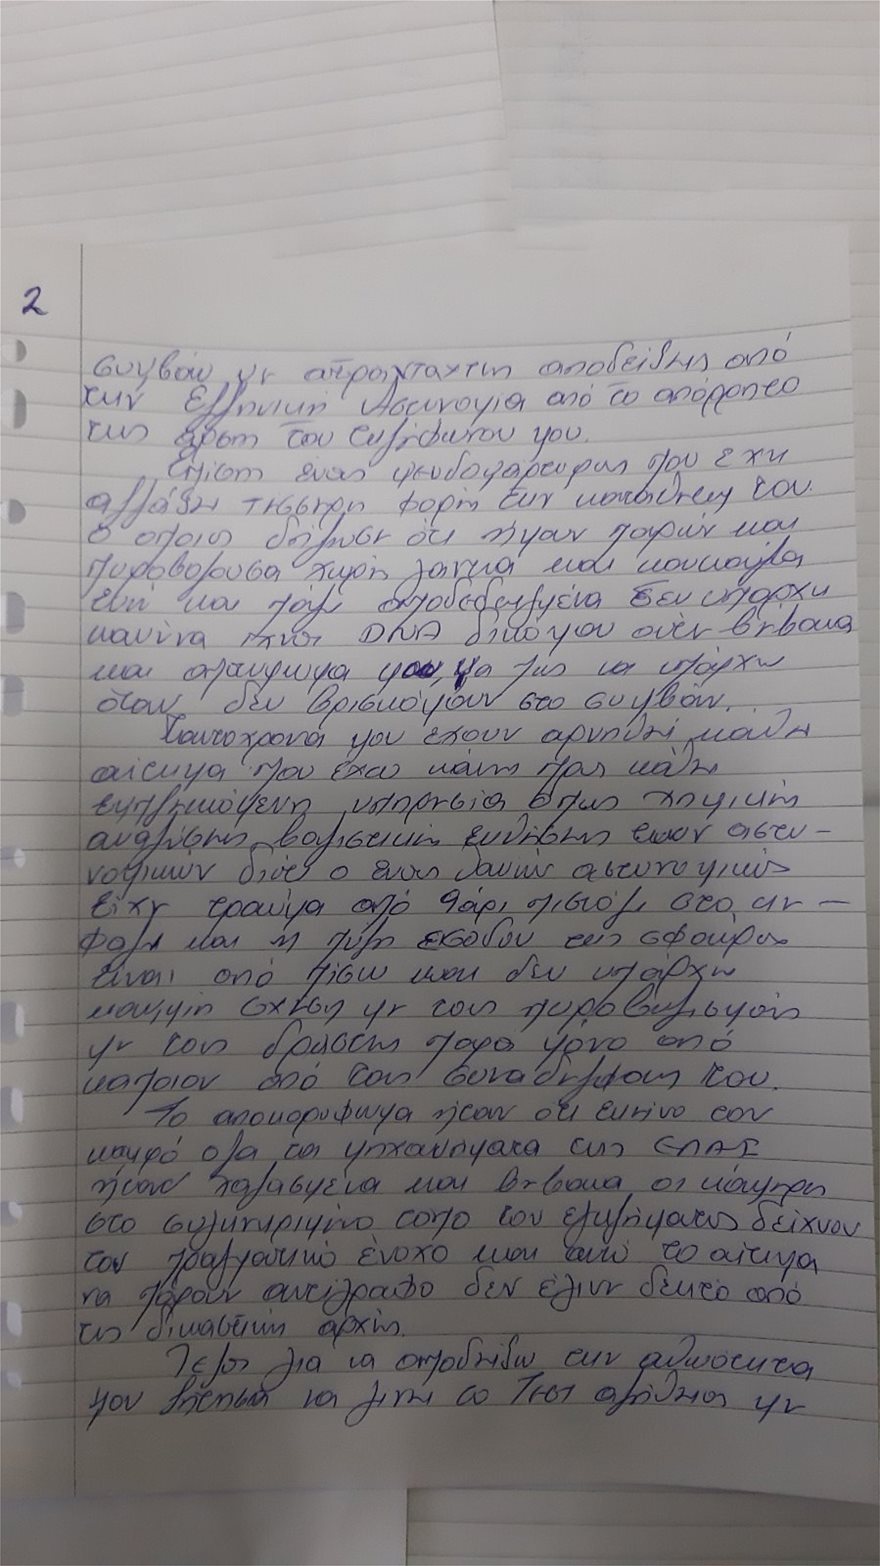 2
συμβάν με απρανταχτες αποδείξης από
την Ελληνική Αστυνομία από το απόρρητο
της άρση του τηλεφώνου μου.
Επίση ένας ψευδομάρτυρας που εχη
αλλάξη τεσσερη φορη την κατάθεση του.
ο οποιος δήλωσε ότι ήμαν παρών και
πυροβολουσα χωρη γαντια και κουκουλα
ενώ και πάλι αποδεδειγμένα δεν υπάρχη
κανένα ιχνος DNA δικό μου ούτε βέβαια
και αποτυπωμα μου, μα πως να υπάρχη
όταν δεν βρισκόμουν στο συμβάν.
Ταυτοχρονα μου εχουν αρνηθεί κάθε
αιτημα που έχω κάνη προς κάθε
εμπλεκόμενη υπηρεσία όπως χημικής
αναλύσης βαλιστική εκθέσης των αστυ-
νομικών διότι ο ενας θανών αστυνομικός
είχε τραύμα από 9άρι πιστόλι στο κε-
φαλι και η πύλη εισόδου της σφαίρας
είναι από πίσω και δεν υπάρχη
καμμιη σχέση με τους πυροβολισμούς
με τους δράστες παρα μόνο από
καποιον από τους συναδέλφους του.
Το αποκορυφωμα ήταν ότι εκείνο τον
καιρό ολα τα μηχανηματα της ΕΛΑΣ
ήταν χαλασμένα και βέβαια οι κάμερες
στο συγκεκριμένο τοπο του εγκλήματος δείχνουν
τον πραγματικό ένοχο και αυτό το αίτημα
να πάρουν αντίγραφο δεν έγινε δεκτό από
τις δικαστική αρχές.
Τέλος για να αποδείξω την αθωότητα
μου ζήτησα να γίνει το τεστ αλήθειας με